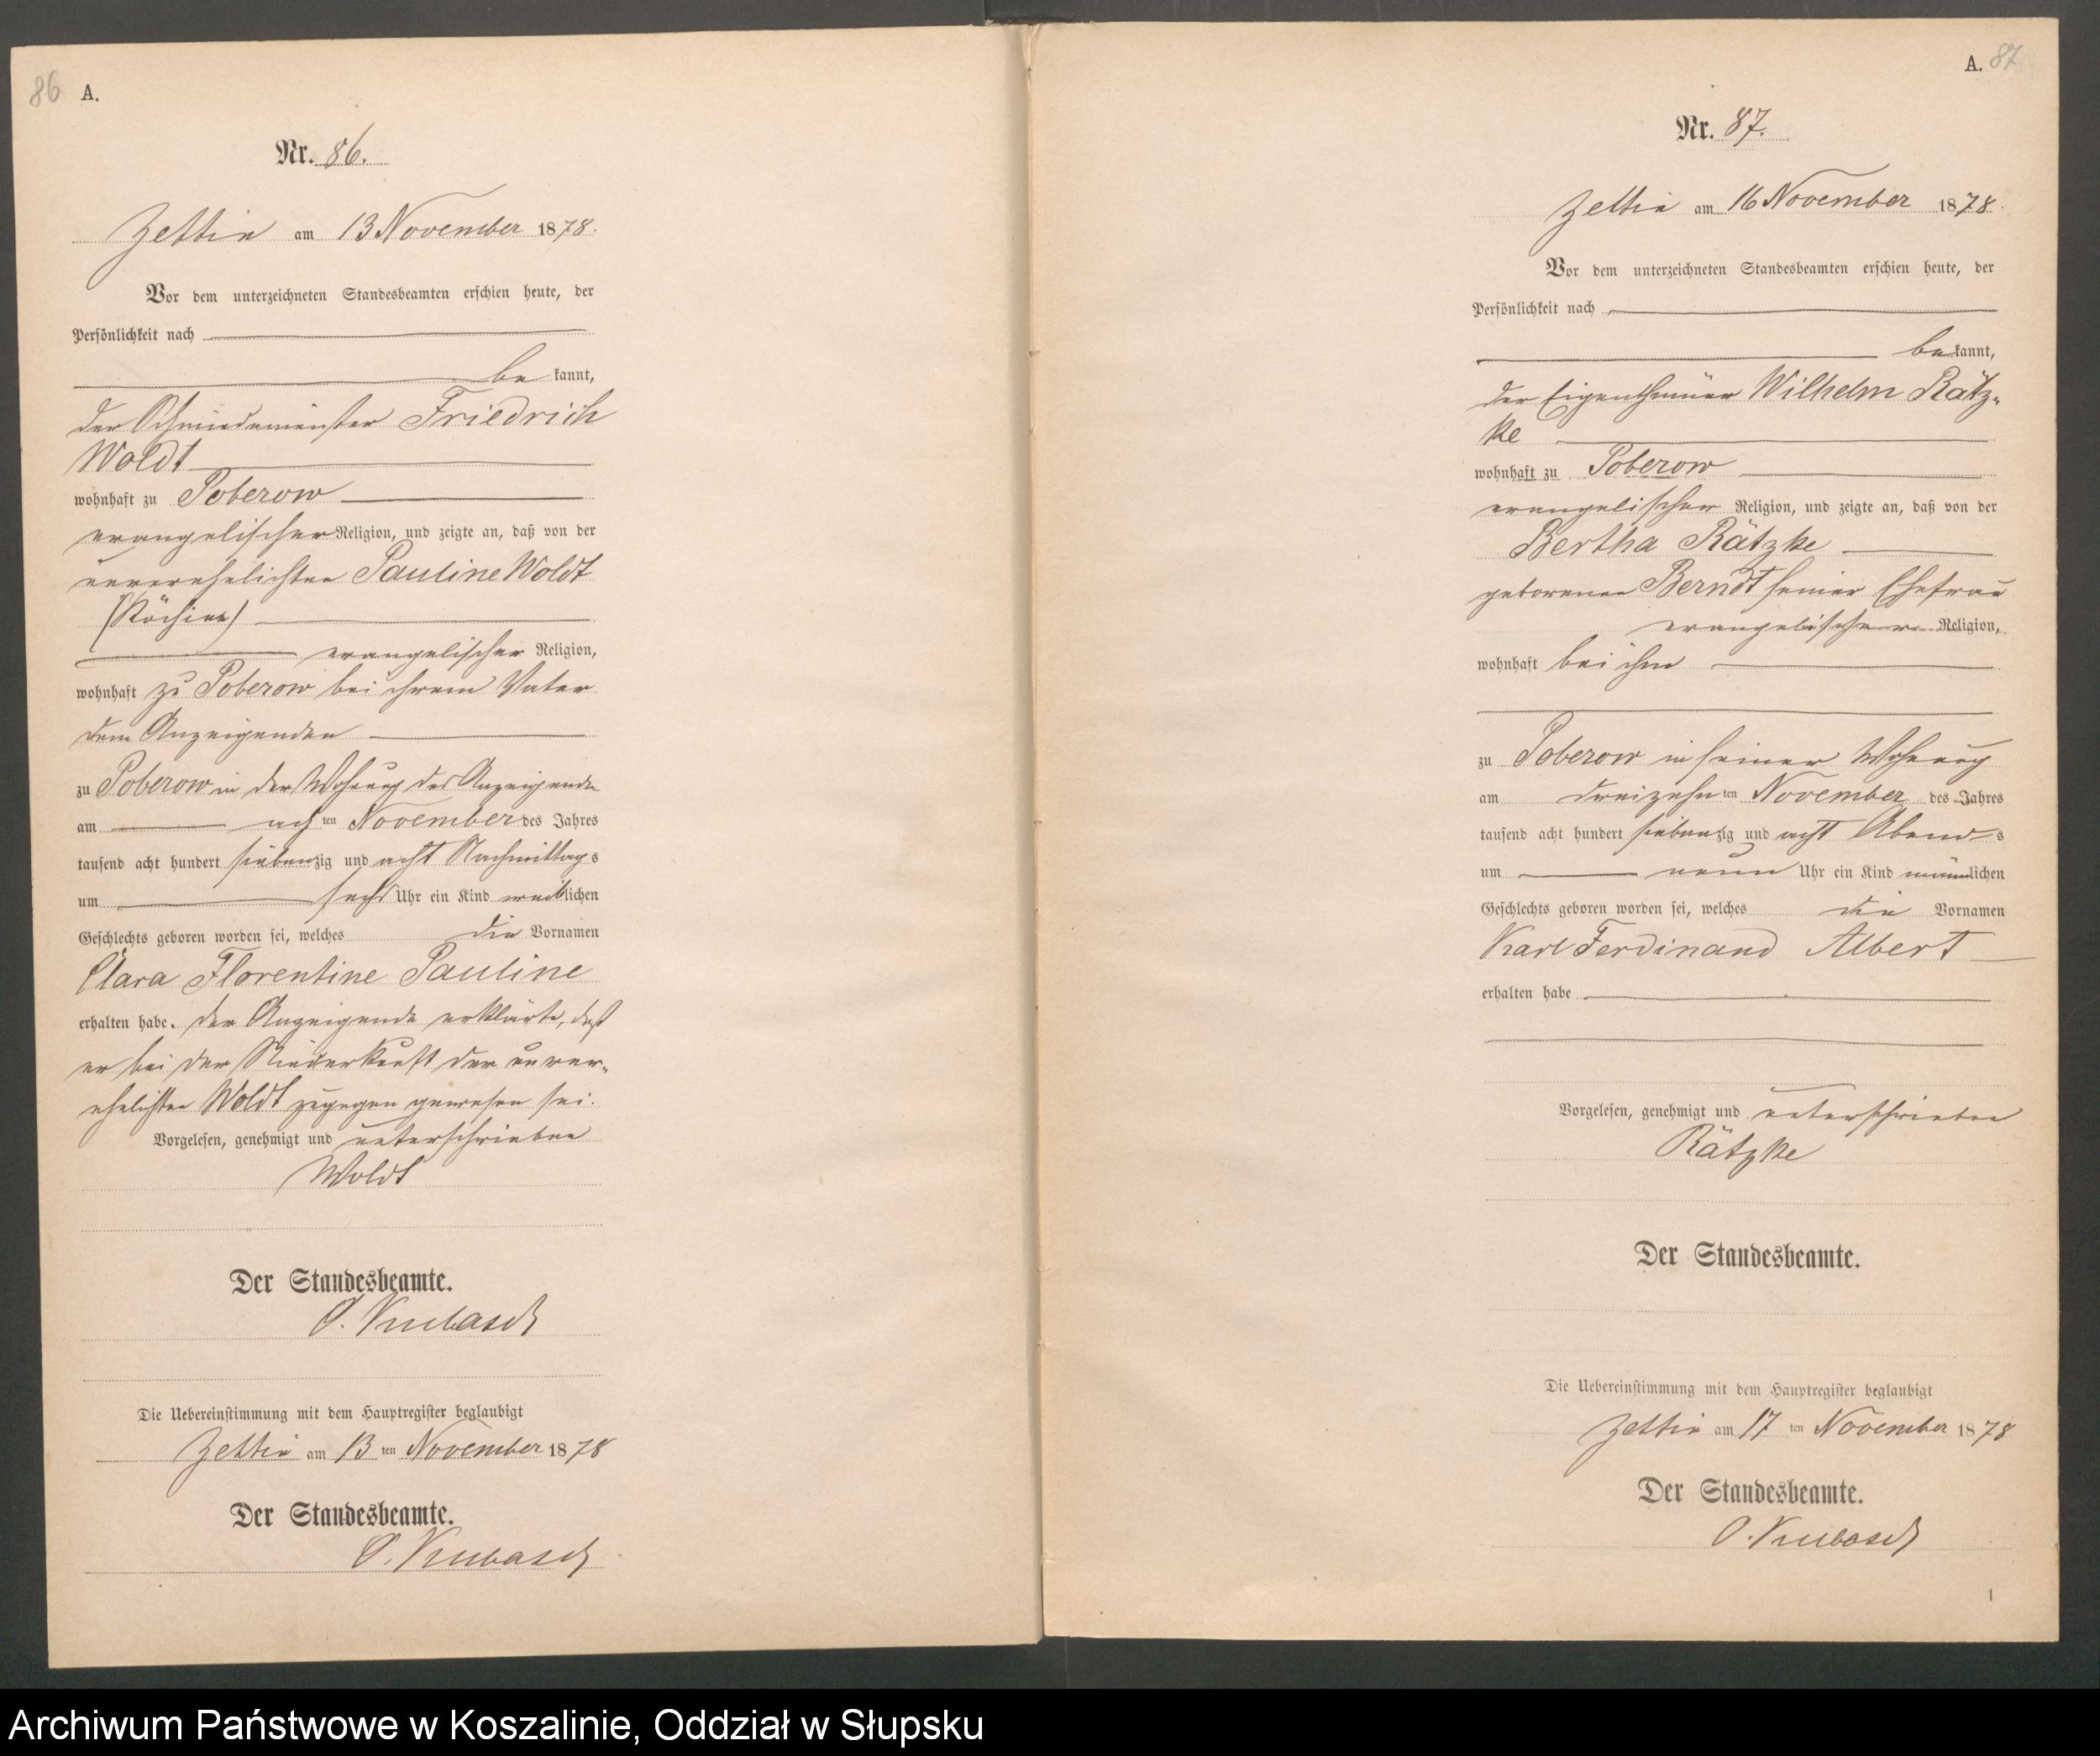 86 A.
Nr. 86.
Zettin am 13 November 1878.
Vor dem unterzeichneten Standesbeamten erschien heute, der
Persönlichkeit nach
be kannt,
der Schmiedemeister Friedrich
Woldt
wohnhaft zu Poberow
evangelischer Religion, und zeigte an, daß von der
unverehelichten Pauline Woldt
(Köchin)
evangelischer Religion,
wohnhaft zu Poberow bei ihrem Vater
dem Anzeigenden
zu Poberow in der Wohnung des Anzeigenden
am achten November des Jahres
tausend acht hundert siebenzig und acht Nachmittags
um sechs Uhr ein Kind weiblichen
Geschlechts geboren worden sei, welches die Vornamen
Clara Florentine Pauline
erhalten habe. Der Anzeigende erklärte, daß
er bei der Niederkunft der unver-
ehelichten Woldt zugegen gewesen sei.
Vorgelesen, genehmigt und unterschrieben
Woldt
Der Standesbeamte.
O. Kubasch
Die Uebereinstimmung mit dem Hauptregister beglaubigt
Zettin am 13 ten November 1878
Der Standesbeamte.
O. Kubasch
A. 87
Nr. 87.
Zettin am 16 November 1878.
Vor dem unterzeichneten Standesbeamten erschien heute, der
Persönlichkeit nach
bekannt,
der Eigenthümer Wilhelm Rätz-
ke
wohnhaft zu Poberow
evangelischer Religion, und zeigte an, daß von der
Bertha Rätzke
geborenen Berndt seiner Ehefrau
evangelischer Religion,
wohnhaft bei ihm
zu Poberow in seiner Wohnung
am dreizehnten November des Jahres
tausend acht hundert siebenzig und acht Abends
um neun Uhr ein Kind männlichen
Geschlechts geboren worden sei, welches die Vornamen
Karl Ferdinand Albert
erhalten habe
Vorgelesen, genehmigt und unterschrieben
Rätzke
Der Standesbeamte.
Die Uebereinstimmung mit dem Hauptregister beglaubigt
Zettin am 17 ten November 1878
Der Standesbeamte.
O. Kubasch
1
Archiwum Państwowe w Koszalinie, Oddział w Słupsku